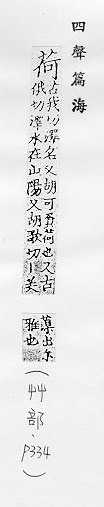 四聲篇海
荷
古我切澤名又胡可切荷也又古
俄切澤水在山陽又胡歌切芙
蕖出尒
雅也
(艸部、p334)